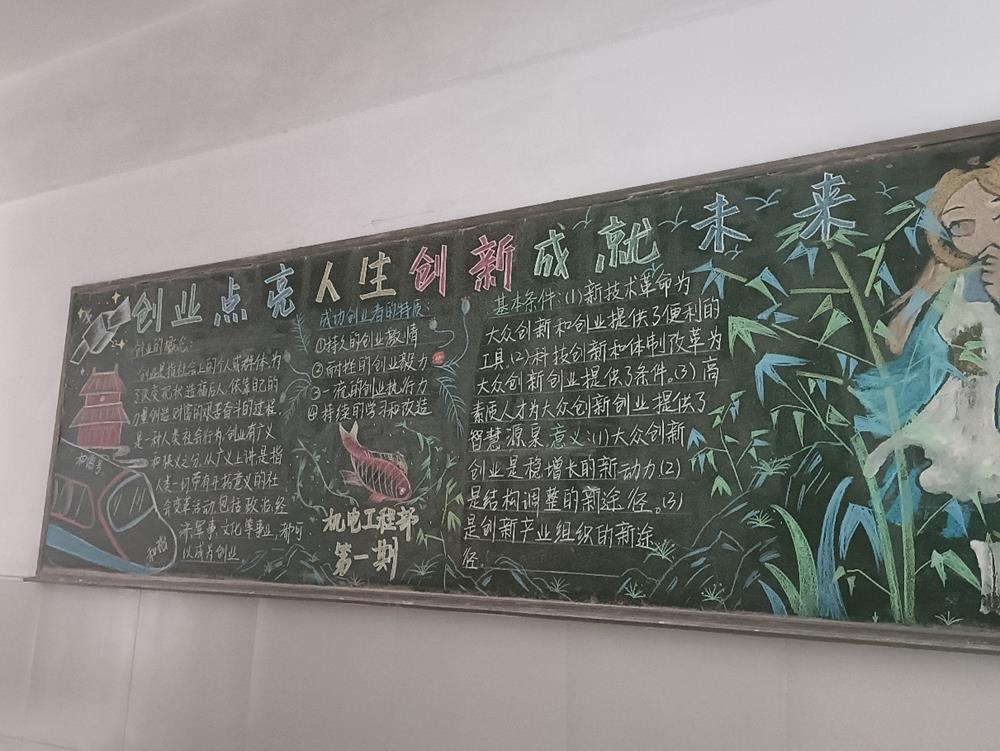 创业点亮人生创新成就未来
创业的概念:
创业是指社会上的个人或群体为
了改变现状造福后人依靠自己的
力量创造财富的艰苦奋斗的过程
是一种人类社会行为,创业有广义
和狭义之分,从广义上讲是指
人类一切带有开拓意义的社
会变革运动,包括政治,经
济,军事,文化等事业,都可
以成为创业
和谐号
和谐
成功创业者的特质:
①持久的创业激情
②耐挫的创业毅力
③一流的创业执行力
④持续的学习和改造
机电工程部
第一期
基本条件:(1)新技术革命为
大众创新和创业提供了便利的
工具.(2)科技创新和体制改革为
大众创新创业提供了条件.(3)高
素质人才为大众创新创业提供了
智慧源泉 意义:(1)大众创新
创业是稳增长的新动力(2)
是结构调整的新途径.(3)
是创新产业组织的新途
径.